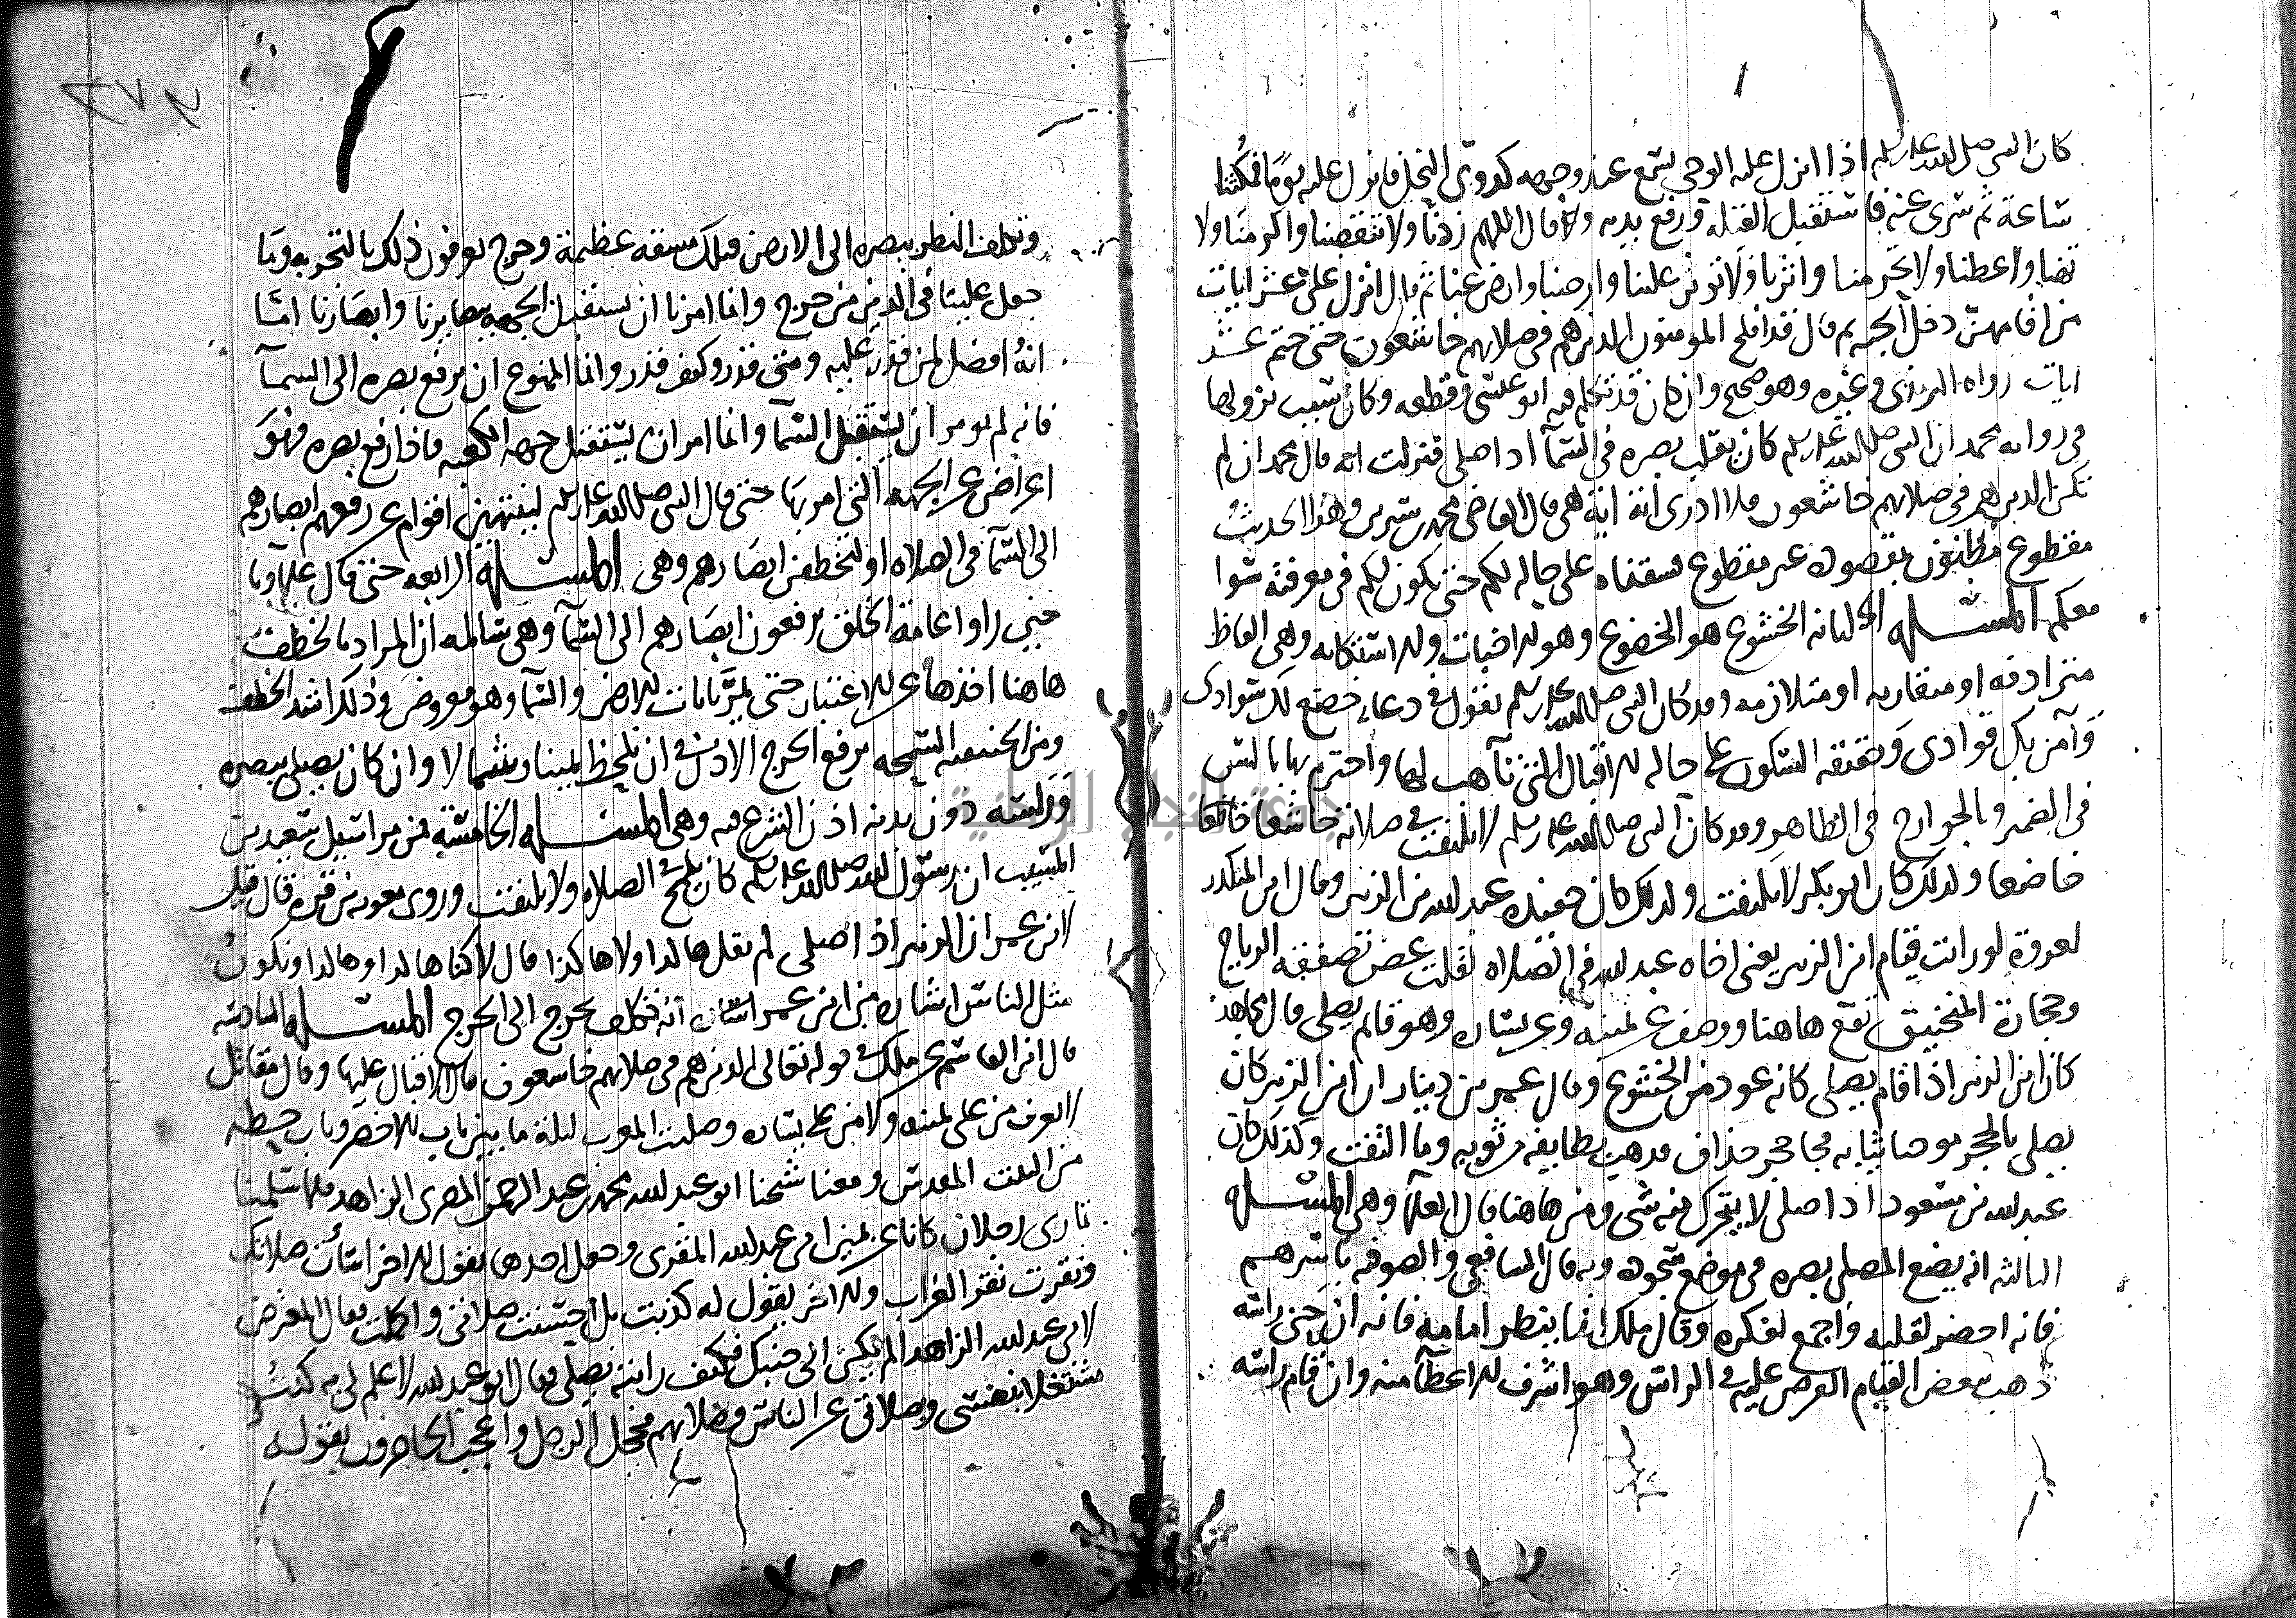 كان النبي صلى الله عليه وسلم اذا انزل عليه الوحي يسمع عند وجهه كدوي النحل فانزل عليه يوما فمكثنا
ساعة ثم سرى عنه فاستقبل القبلة ورفع يديه وقال اللهم زدنا ولا تنقصنا واكرمنا ولا
تهنا واعطنا ولا تحرمنا واثرنا ولا توثر علينا وارضنا وارض عنا ثم قال انزل علي عشر ايات
من اقامهن دخل الجنه ثم قال قد افلح المومنون الذين هم في صلاتهم خاشعون حتى ختم عشر
ايات رواه الترمذي وغيره وهو صحيح وان كان قد تكلم فيه ابو عيسى وقطعه وكان سبب نزولها
في روايه محمد ان النبي صلى الله عليه وسلم كان يقلب بصره في السما اذا صلى فنزلت ايه قال محمد ان لم
تكن الذين هم في صلاتهم خاشعون فلا ادري اية اية هي قال القاضي محمد بن سيرين وهذا الحديث
مقطوع مظنون مقصوده غير مقطوع لسقناه على حاله لكم حتى يكون لكم في معرفته سوا
معكم المسئلة الثانيه الخشوع هو الخضوع وهو الاخبات والاستكانه وهي الفاظ
مترادفه او متقاربه او متلازمه وقد كان النبي صلى الله عليه وسلم يقول في دعائه خضع لك سوادي
وآمن بك فوادي وحقيقته السكون على حاله الاقبال التي تآهب لها واحترم بها بالسر
في الضمير وبالجوارح في الظاهر وقد كان النبي صلى الله عليه وسلم لا يلتفت في صلاته خاشعا خاضعا
خاضعا ولذلك كان ابو بكر لا يلتفت ولذلك كان حفيده عبد الله بن الزبير وقال ابن المنكدر
لعروة لو رايت قيام ابن الزبير يعني اخاه عبد الله في الصلاه لقلت غصن تصفقه الرياح
وحجارة المنجنيق تقع هاهنا ووصف عن يمينه وعن يساره وهو قائم يصلي قال مجاهد
كان ابن الزبير اذا قام يصلي كانه عود من الخشوع وقال عمرو بن دينار ان ابن الزبير كان
يصلي بالحجر مرخيا ثيابه فجا حجر حذاف فذهب بطايفه من ثوبه وما التفت وكذلك كان
عبد الله بن مسعود اذا صلى لا يتحرك منه شي ومن هاهنا قال العلما وهي المسئلة
الثالثه انه يضع المصلي بصره في موضع سجوده وبه قال الشافعي والصوفيه باسرهم
فانه احضر لقلبه واجمع لفكره وقال ملك انما ينظر امامه فانه ان حنى راسه
ذهب ببعض القيام المفترض عليه في الراس وهو اشرف الاعضآ منه وان قام راسه
وتكلف النظر ببصره الى الارض فتلك مشقه عظيمة وحرج يعرفون ذلك بالتجربه وما
جعل علينا في الدين من حرج وانما امرنا ان نستقبل الجهه ببصايرنا وابصارنا امّا
انه افضل لمن قدر عليه ومتى قدر وكيف قدر وانما الممنوع ان يرفع بصره الى السمآ
فانه لم يومر ان يستقبل السما وانما امر ان يستقبل جهه الكعبه فاذا رفع بصره فهو
اعراض عن الجهه التي امر بها حتى قال النبي صلى الله عليه وسلم لينتهين اقوام عن رفعهم ابصارهم
الى السمآ في الصلاه او لتخطفن ابصارهم وهي المسئلة الرابعه حتى قال علماونا
حين راوا عامة الخلق يرفعون ابصارهم الى السمآ وهي سالمه ان المراد بالخطف
هاهنا اخذها عن الاعتبار حتى تمر بايات الارض والسما وهو معرض وذلك اشد الخطف
ومن الحنيفيه السمحه يرفع الحرج الاذن في ان يلحظ يمينا وشمالا وان كان يصلي ببصره
وراسه دون بدنه اذن الشرع فيه وهي المسئلة الخامسة فمن مراسيل سعيد بن
المسيب ان رسول الله صلى الله عليه وسلم كان يلمح في الصلاه ولا يلتفت وروى معويه بن قره قال قيل
لابن عمر ان ابن الزبير اذا صلى لم يقل هكذا ولا هكذا قال لاكنا هكذا وهكذا ونكون
مثل الناس اشاره من ابن عمر الى انه تكلف يخرج الى الحرج المسئلة السادسه
قال ابن القاسم عن ملك في قوله تعالى الذين هم في صلاتهم خاشعون قال الاقبال عليها وقال مقاتل
لا يعرف من على يمينه ولا من على يساره وصليت المغرب ليلة ما بين باب الاخضر وباب حطه
من البيت المقدس ومعنا شيخنا ابو عبد الله محمد بن عبد الرحمن المصري الزاهد فلما سلمنا
تمارى رجلان كانا عن يمين ابي عبد الله المقري وجعل احدهما يقول للاخر اسات صلاتك
ونقرت نقر الغراب والاخر يقول له كذبت بل احسنت صلاتي واكملت فقال المعترض
لابي عبد الله الزاهد الم يكن الى جنبك فكيف رايته يصلي فقال ابو عبد الله لا علم لي به كنت
مشتغلا بنفسي وصلاتي عن الناس وصلاتهم فخجل الرجل واعجب الحاضرون بقوله